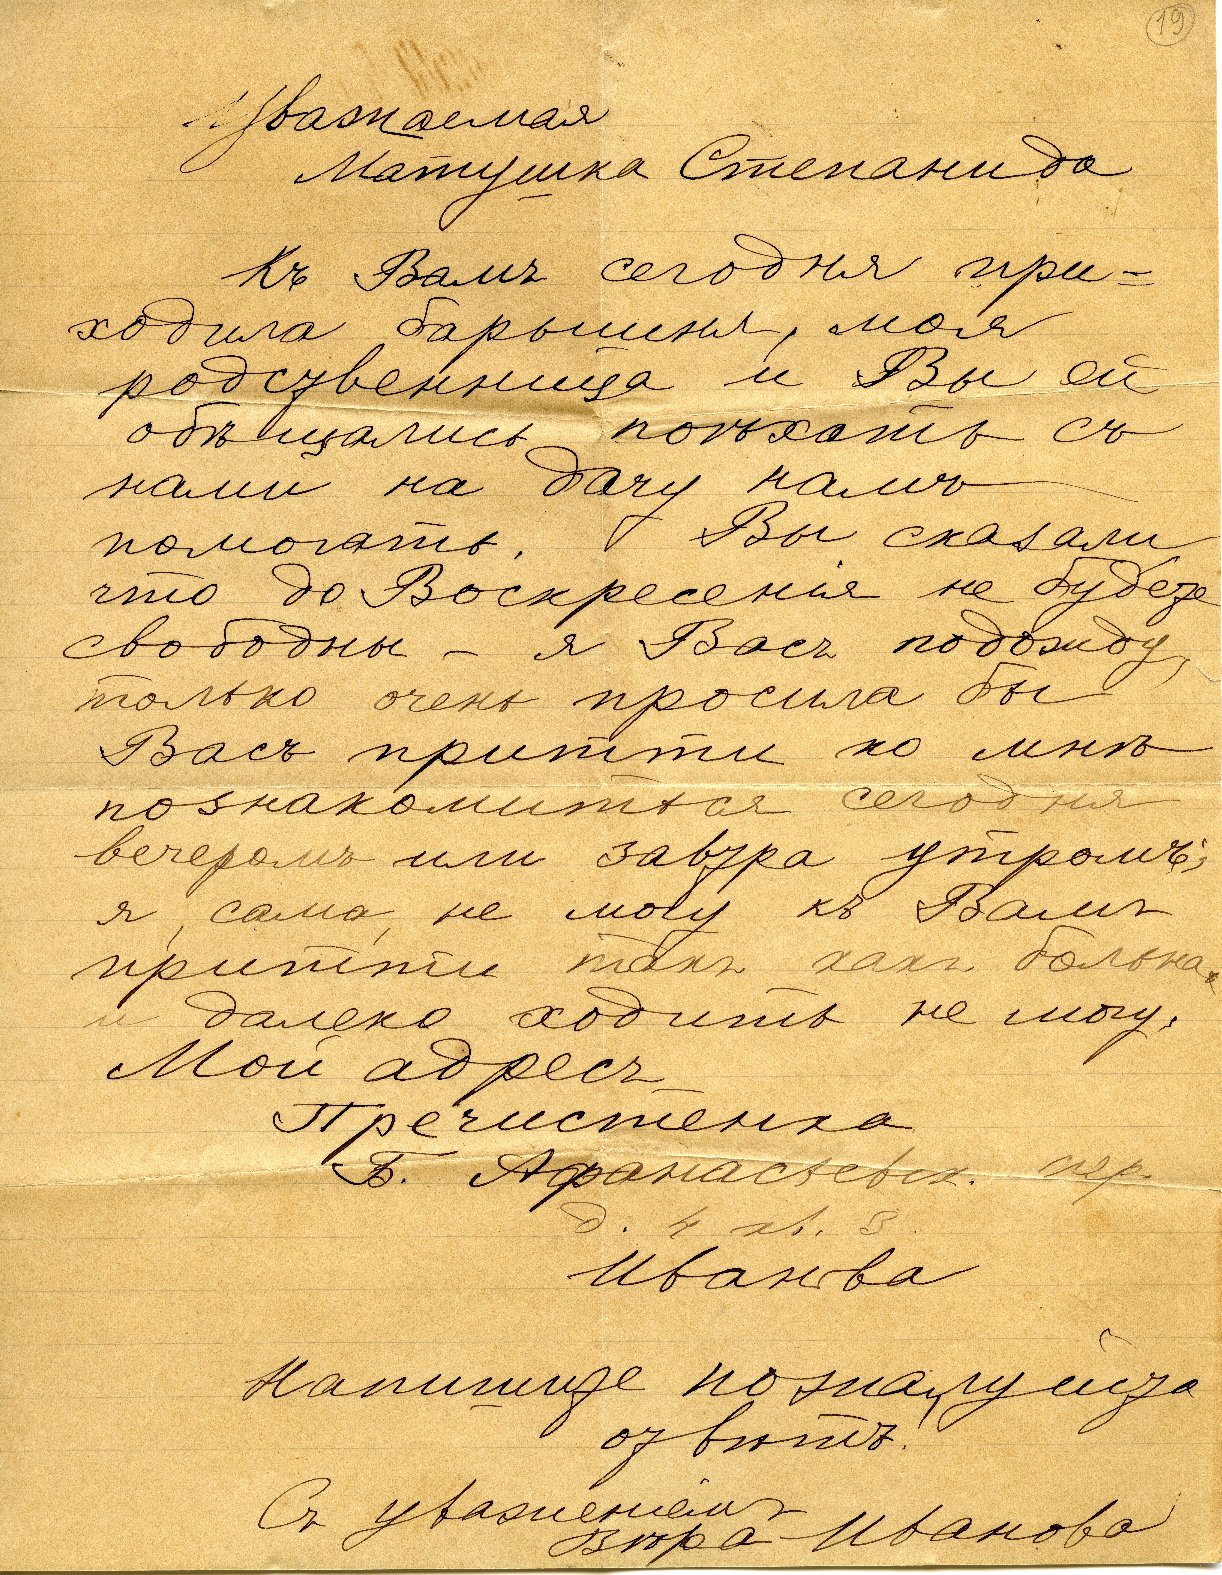 19
Уважаемая
Матушка Степанида
Къ Вамъ сегодня при=
ходила барышня, моя
родственница и Вы ей
обѣщались поѣхать съ
нами на дачу намъ
помогать. Вы сказали
что до Воскресенія не будете
свободны – я Васъ подожду,
только очень просила бы
Васъ притти ко мнѣ
познакомиться сегодня
вечеромъ или завтра утромъ;
я, сама, не могу къ Вамъ
притти такъ какъ больна
и далеко ходить не могу.
Мой адресъ
Пречистенка
Б. Афанасьевск. пер.
д. 4 кв. 3.
Иванова
Напишите пожалуйста
отвѣтъ.
Съ уваженіемъ
Вѣра Иванова